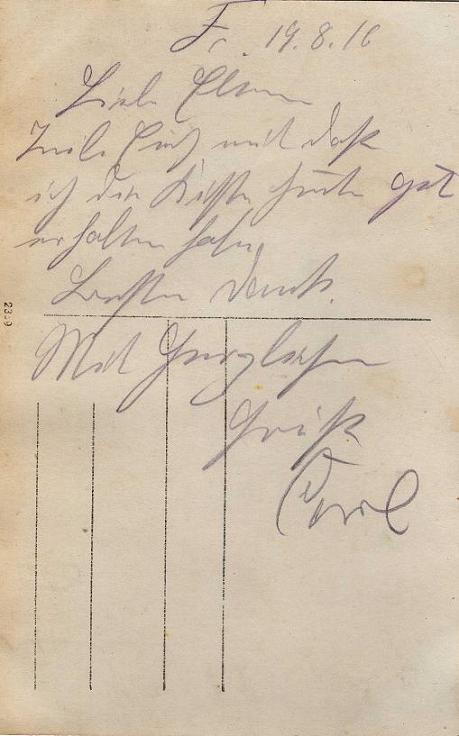 F. 19.8.16
Liebe Eltern
Teile Euch mit daß
ich die Kiste heute gut
erhalten habe.
Besten Dank.
Mit herzlichem
Gruß
Karl